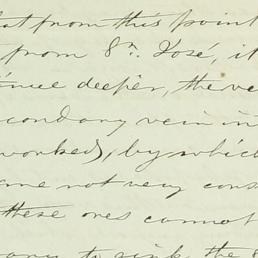 at from this point
from 8n. José, it
inue deeper, the ve
condary vein in
worked, by which
ame not very cons
these ores cannot
to sink the 8